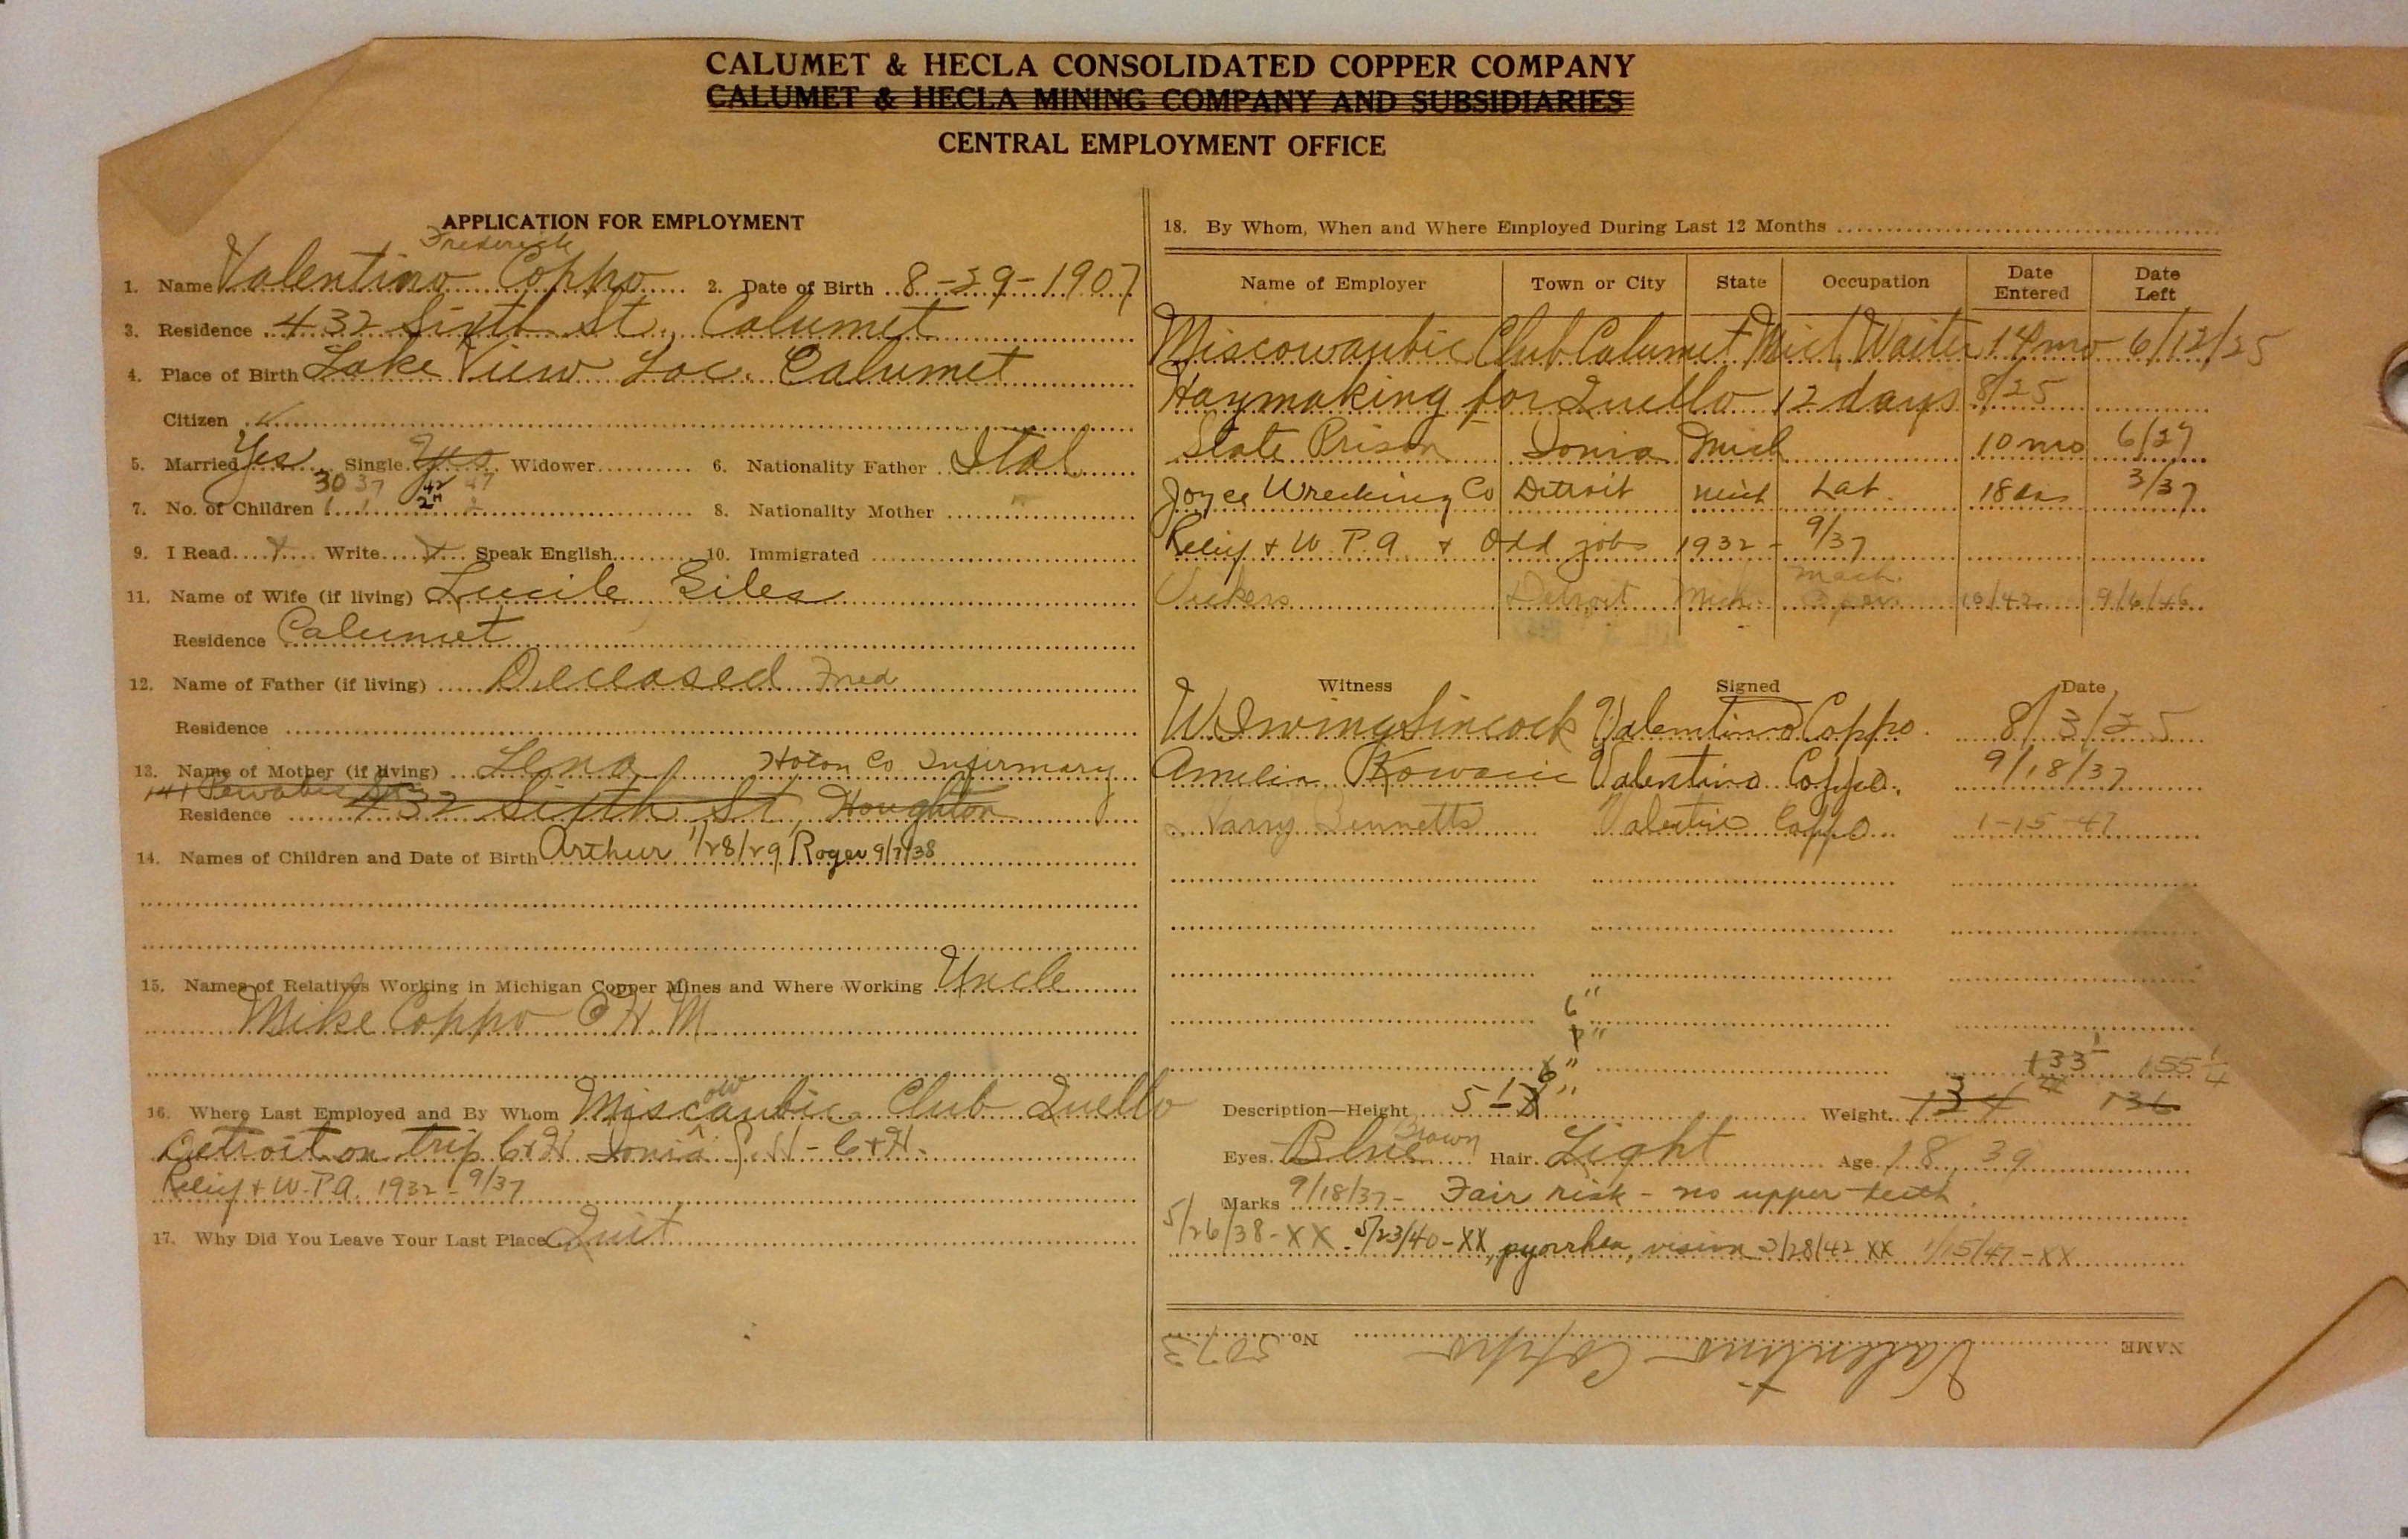 CALUMET & HECLA CONSOLIDATED COPPER COMPANY
CALUMET & HECLA MINING COMPANY AND SUBSIDIARIES
CENTRAL EMPLOYMENT OFFICE
APPLICATION FOR EMPLOYMENT
Frederick
1. Name Valentino Coppo 2. Date of Birth 8-29-1907
3. Residence 432 Sixth St., Calumet
4. Place of Birth Lake View Loc. Calumet
Citizen ✓
5. Married Yes Single Widower 6. Nationality Father Ital
30 37 42 47
7. No. of Children 1 1 2 2 8. Nationality Mother "
9. I Read x Write x Speak English 10. Immigrated
11. Name of Wife (if living) Lucile Biles
Residence Calumet
12. Name of Father (if living) Deceased Fred
Residence
13. Name of Mother (if living) Lena Hoton Co Infirmary
141 Pewabic
Residence 432 Sixth St, Houghton
14. Names of Children and Date of Birth Arthur 1/28/29 Roger 9/7/38
15. Names of Relatives Working in Michigan Copper Mines and Where Working Uncle
Mike Coppo C H M
ow
16. Where Last Employed and By Whom Miscaubic Club Quello
Detroit on trip C+H Ionia S.H - C+H.
Relief + W.P.A. 1932 - 9/37
17. Why Did You Leave Your Last Place Quit
18. By Whom, When and Where Employed During Last 12 Months
Name of Employer Town or City State Occupation Date Entered Date Left
Miscowaubic Club Calumet Mich Waiter 14 mo 6/12/25
Haymaking for Quello 12 days 8/25
State Prison Ionia Mich 10 mo 6/27
Joyce Wrecking Co Detroit Mich Lab. 18 das 3/37
Relief + W.P.A. + Odd jobs 1932 - 9/37
Mach.
Vickers Detroit Mich. Oper. 10/42 9/6/46
Witness Signed Date
W Irving Sincock Valentino Coppo. 8/3/25
Amelia Kowacic Valentino Coppo. 9/18/37
Harry Bennetts Valentino Coppo 1-15-47
6"
6"
133 155 1/4
Description—Height 5 - Weight 134 136
Brown
Eyes Blue Hair Light Age 18 39
Marks 9/18/37 - Fair risk - no upper teeth.
5/26/38 - XX - 5/23/40 - XX, pyorrhea, vision 3/28/42 XX 1/15/47 - XX
NAME Valentino Coppo No. 5073